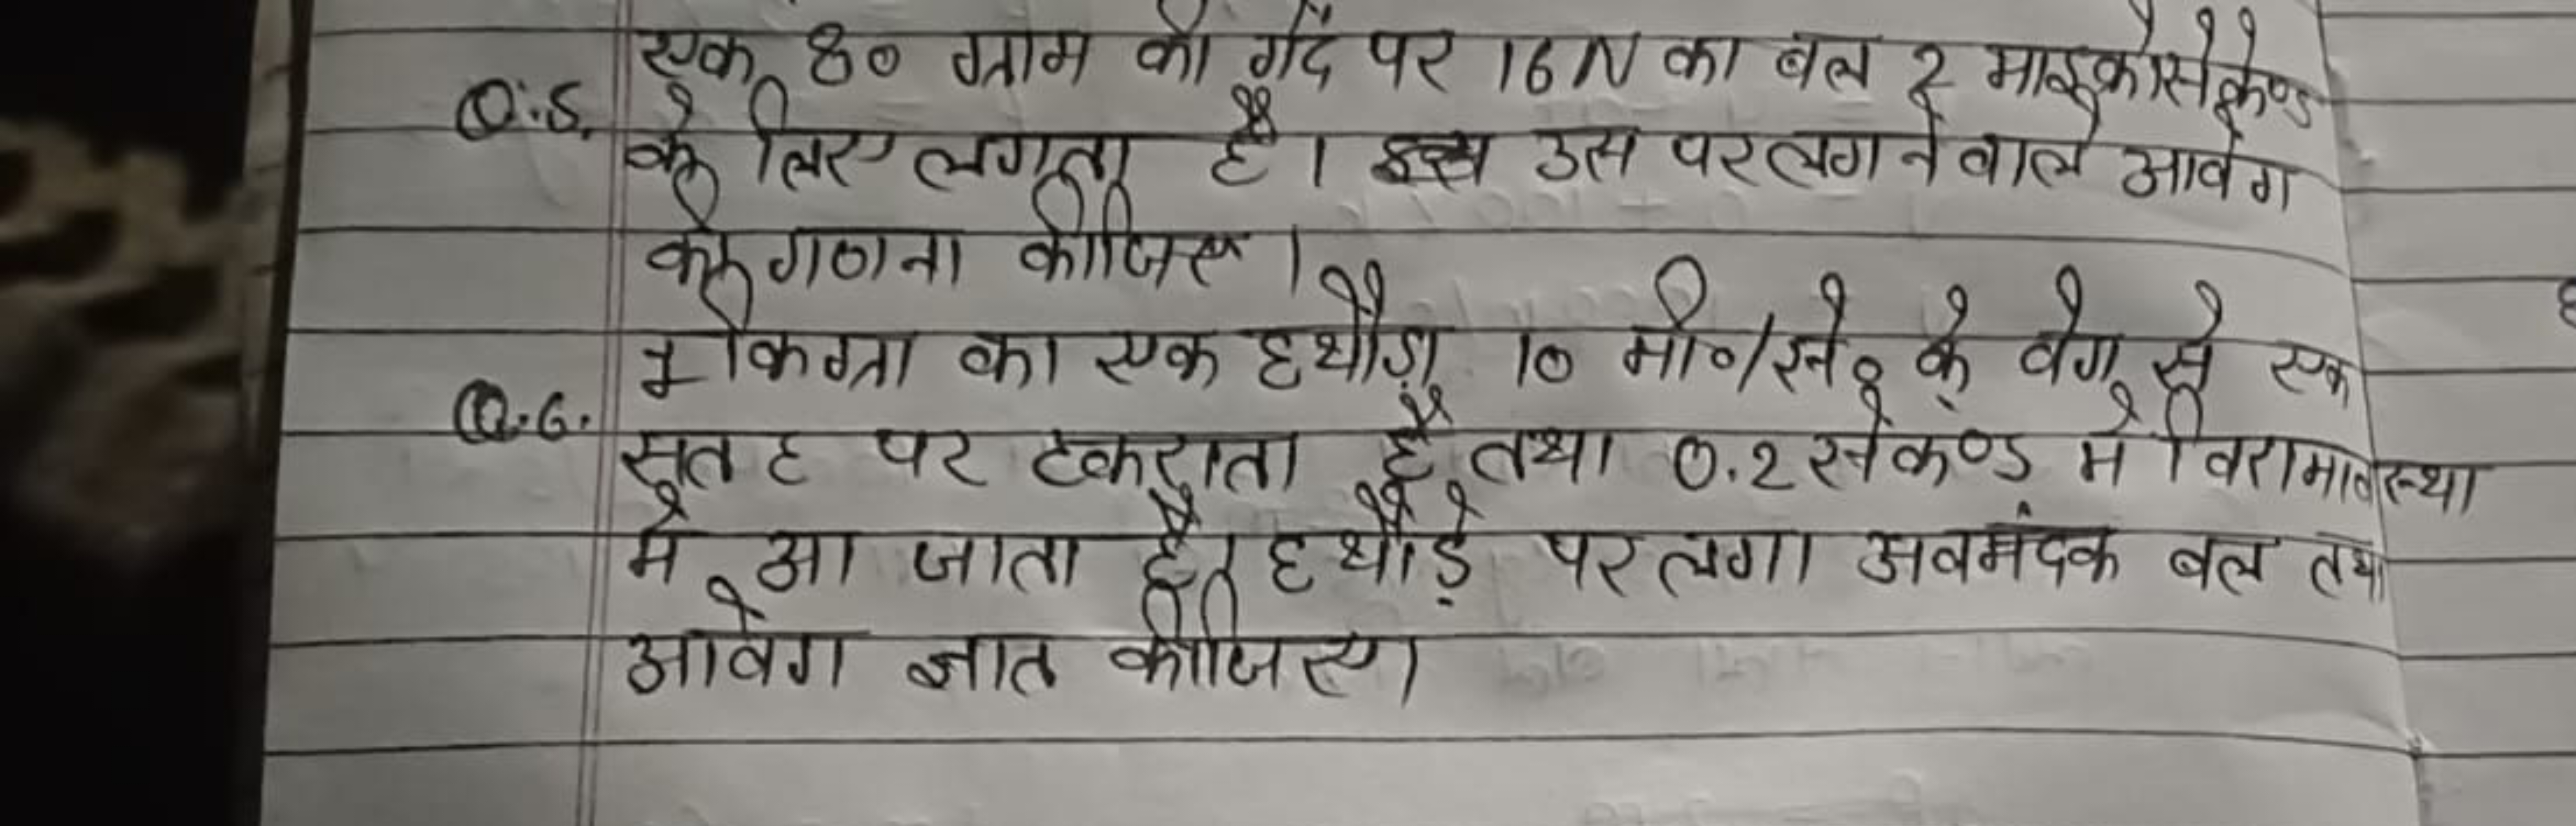 एक 80 ग्राम की गेंद पर 16N का बल 2 माइक्रोसेकेण्ड
Q.5. के लिए लगता है। उस पर लगने वाले आवेग
की गणना कीजिए।
1 किग्रा का एक हथौड़ा 10 मी०/से० के वेग से एक
Q.6. सतह पर टकराता है तथा 0.2 सेकण्ड में विरामावस्था
में आ जाता है। हथौड़े पर लगा अवमंदक बल तथा
आवेग ज्ञात कीजिए।